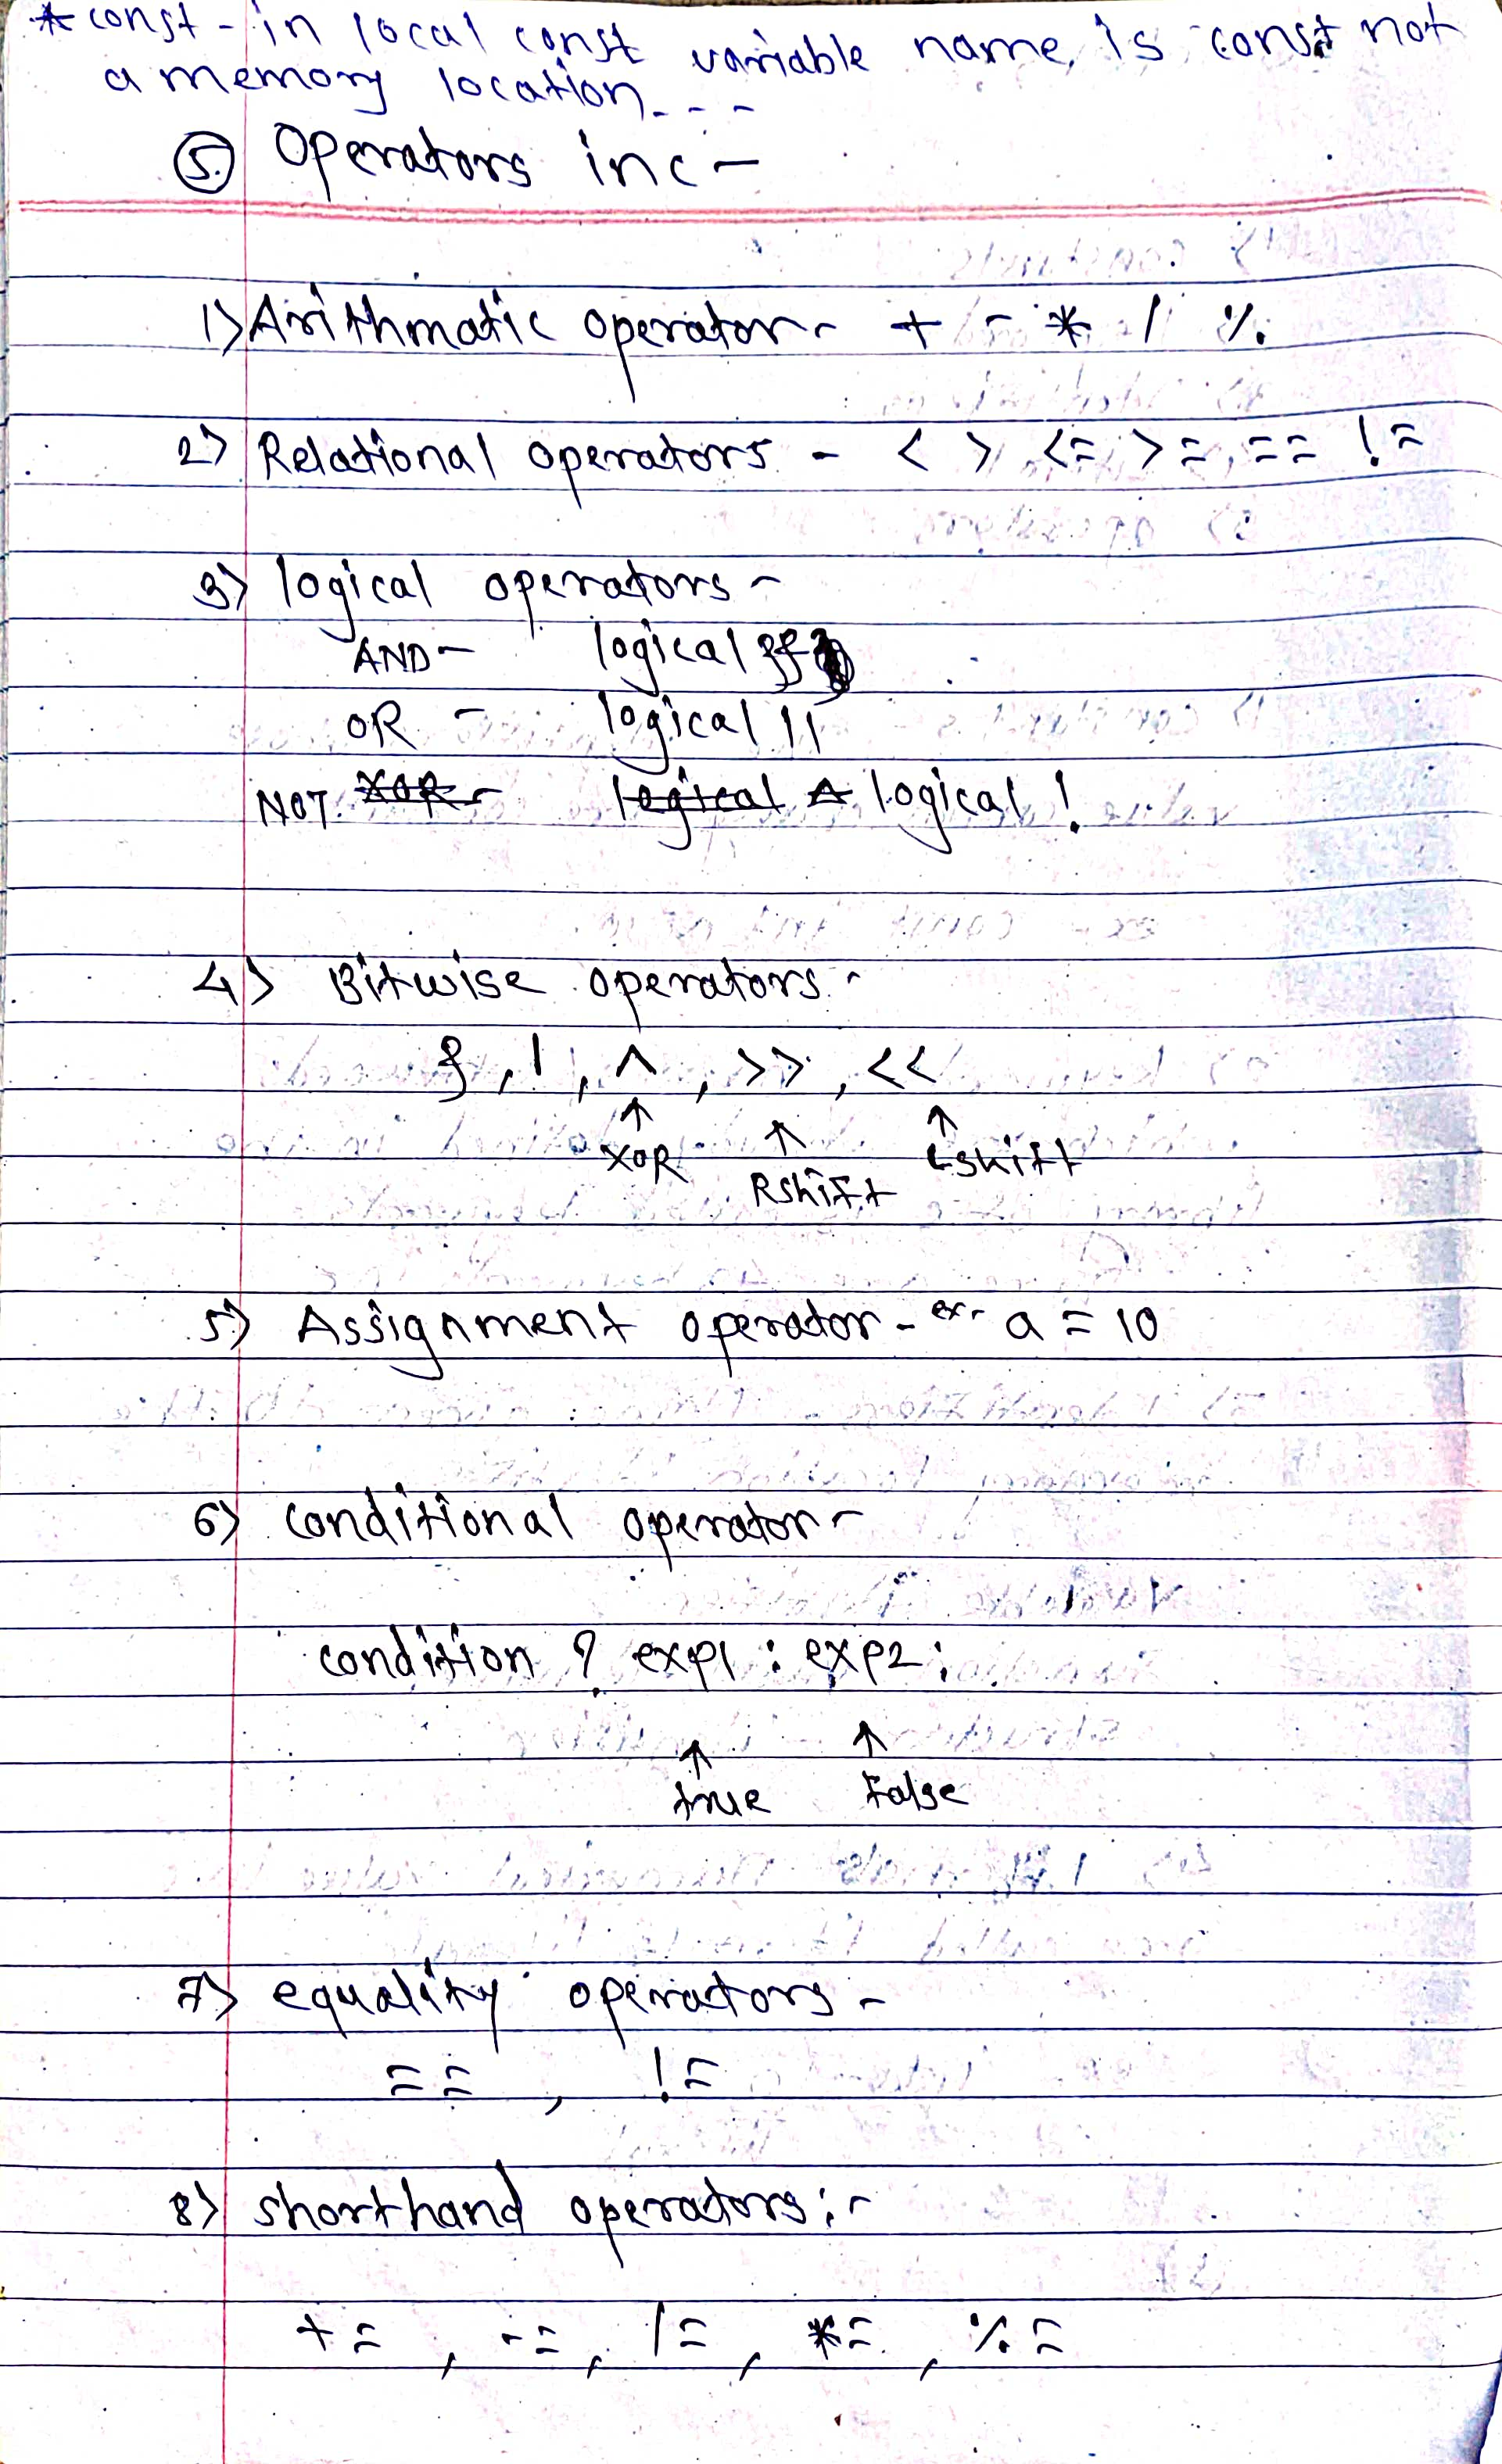 * const - in local const variable name is const not
a memory location - - -
5. Operators in c -
1) Arithmatic operator - + - * / %
2) Relational operators - < > <= >= == !=
3) logical operators -
AND - logical &&
OR - logical ||
NOT XOR - logical ^ logical !
4) Bitwise operators -
& , | , ^ , >> , <<
↑ ↑ ↑
XOR Rshift Lshift
5) Assignment operator - ex- a = 10
6) conditional operator -
condition ? exp1 : exp2 ;
↑ ↑
true False
7) equality operators -
== , !=
8) shorthand operators :-
+= , -= , /= , *= , %=